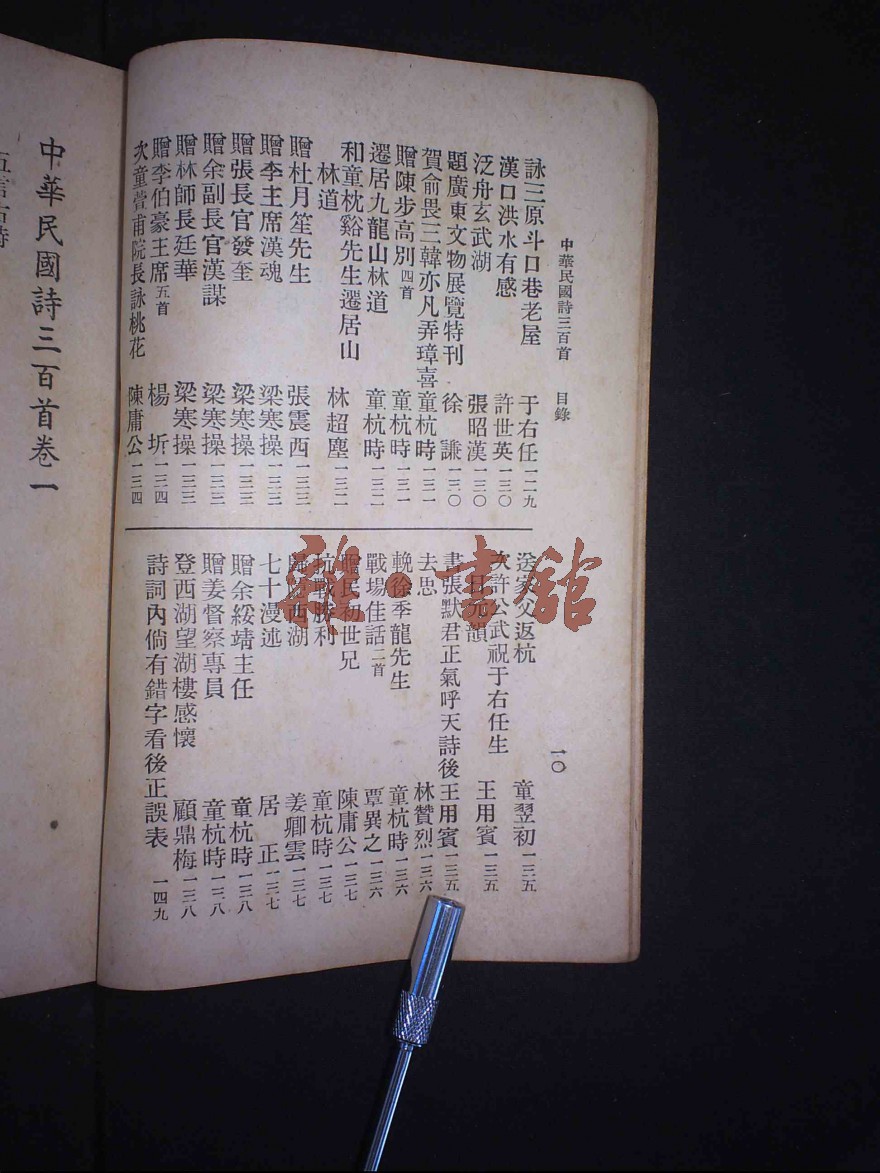 中華民國詩三百首 目錄 一〇
詠三原斗口巷老屋 于右任 一二九
漢口洪水有感 許世英 一三〇
泛舟玄武湖 張昭漢 一三〇
題廣東文物展覽特刊 徐謙 一三〇
賀俞畏三韓亦凡弄璋喜 童杭時 一三一
贈陳步高別四首 童杭時 一三一
遷居九龍山林道 童杭時 一三二
和童枕谿先生遷居山
林道 林超塵 一三二
贈杜月笙先生 張震西 一三三
贈李主席漢魂 梁寒操 一三三
贈張長官發奎 梁寒操 一三三
贈余副長官漢謀 梁寒操 一三三
贈林師長廷華 梁寒操 一三三
贈李伯豪主席五首 楊圻 一三四
次童萱甫院長詠桃花 陳庸公 一三四
送家父返杭 童翌初 一三五
次許公武祝于右任生
日元韻 王用賓 一三五
書張默君正氣呼天詩後 王用賓 一三五
去思 林贊烈 一三六
輓徐季龍先生 童杭時 一三六
戰場佳話二首 覃異之 一三六
贈民初世兄 陳庸公 一三七
抗戰勝利 童杭時 一三七
歸隱西湖 姜卿雲 一三七
七十漫述 居正 一三七
贈余綏靖主任 童杭時 一三八
贈姜督察專員 童杭時 一三八
登西湖望湖樓感懷 顧鼎梅 一三八
詩詞內倘有錯字看後正誤表 一四九
中華民國詩三百首卷一
五言古詩
雜·書館